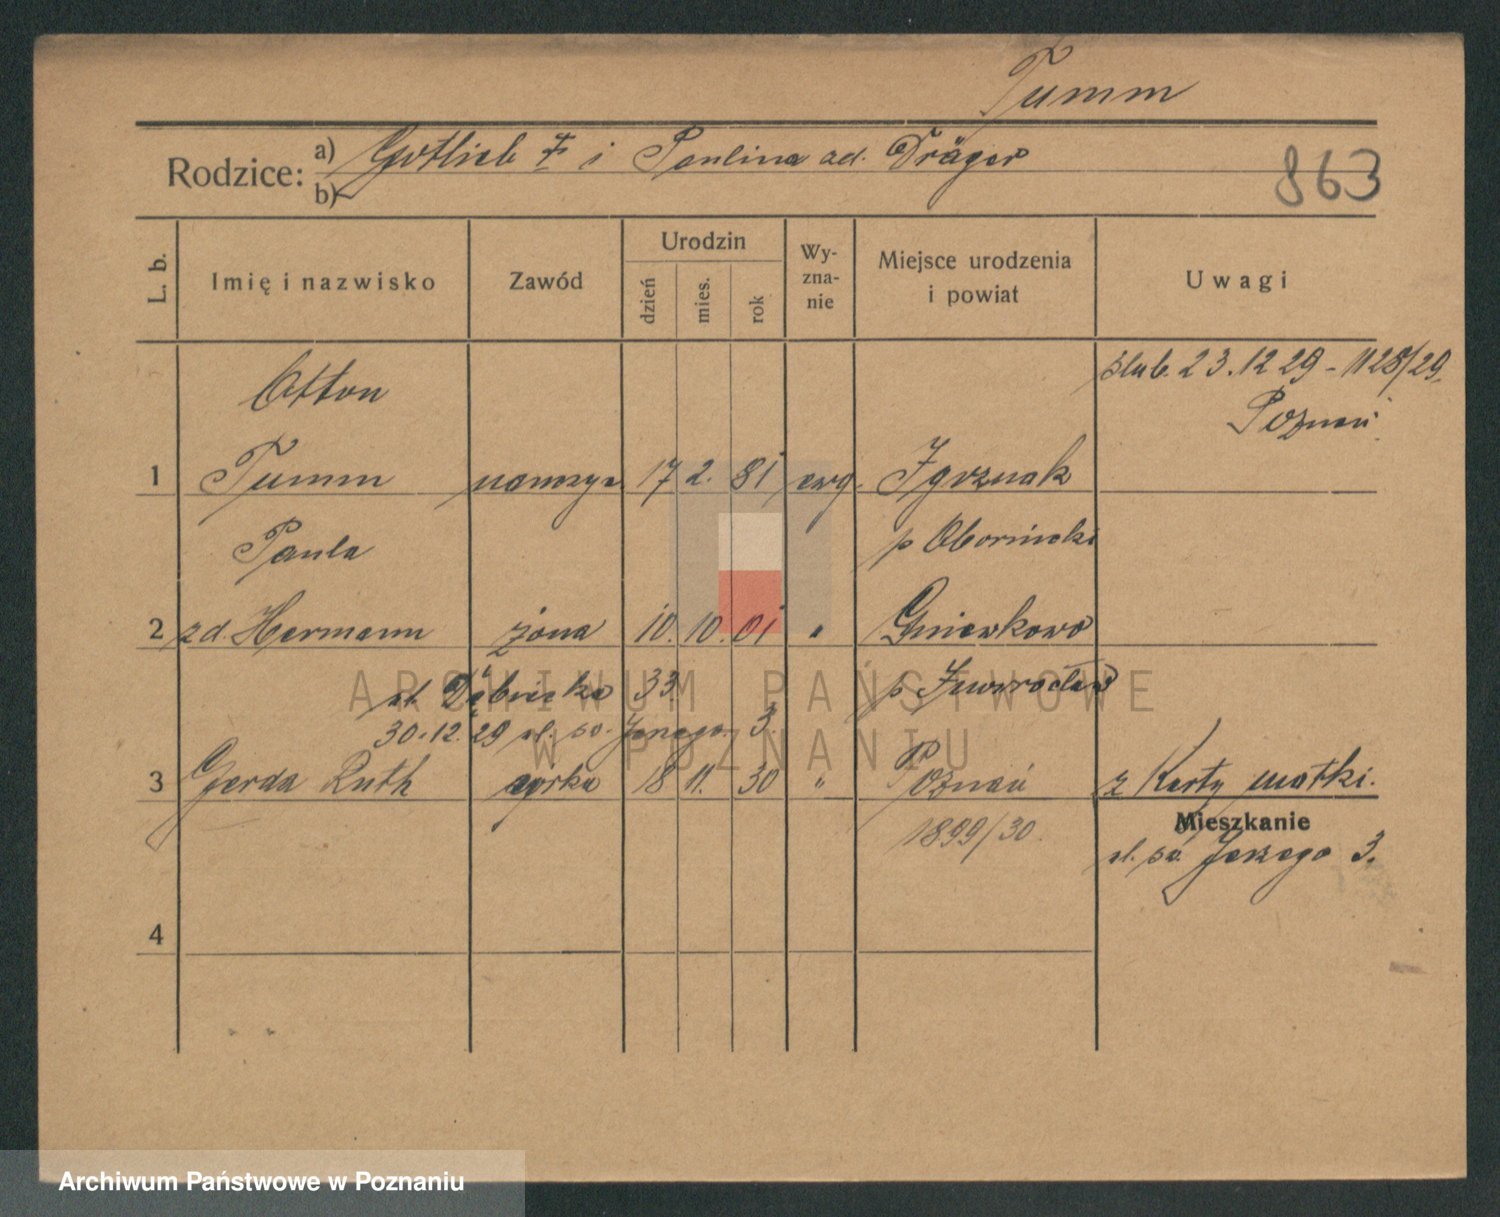 Tumm
Rodzice: a) Gotlieb i Paulina zd. Dräger
b)
863
L. b.
Imię i nazwisko
Zawód
Urodzin
dzień
mies.
rok
Wy-
zna-
nie
Miejsce urodzenia
i powiat
Uwagi
Otton
ślub. 23.12 29 - 1128/29.
Poznań
1 Tumm 17 2. 81 ewg.
Paula
p Obornicki
2 zd. Hermann żona 10. 10. 01 " Gniewkowo
ul. Dąbrówka 33.
p Inowrocław
30.12.29 ul. św. Jerzego 3.
3 Gerda Ruth córka 18 11. 30 " Poznań z Karty matki.
1899/30.
Mieszkanie
ul. św. Jerzego 3.
4
ARCHIWUM PAŃSTWOWE
W POZNANIU
Archiwum Państwowe w Poznaniu